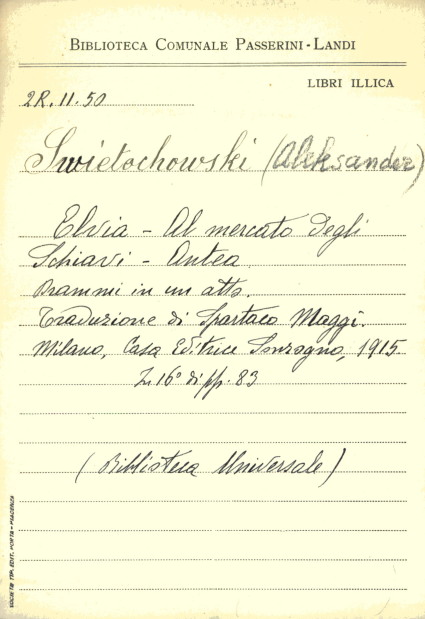 BIBLIOTECA COMUNALE PASSERINI-LANDI
LIBRI ILLICA
2R.11.50
Swietochowski (Aleksander)
Elvia - Al mercato degli
Schiavi - Antea
Drammi in un atto.
Traduzione di Spartaco Maggi.
Milano, Casa Editrice Sonzogno, 1915
In 16° di pp. 83
(Biblioteca Universale)
SOCIETÀ TIP. EDIT. PORTA - PIACENZA